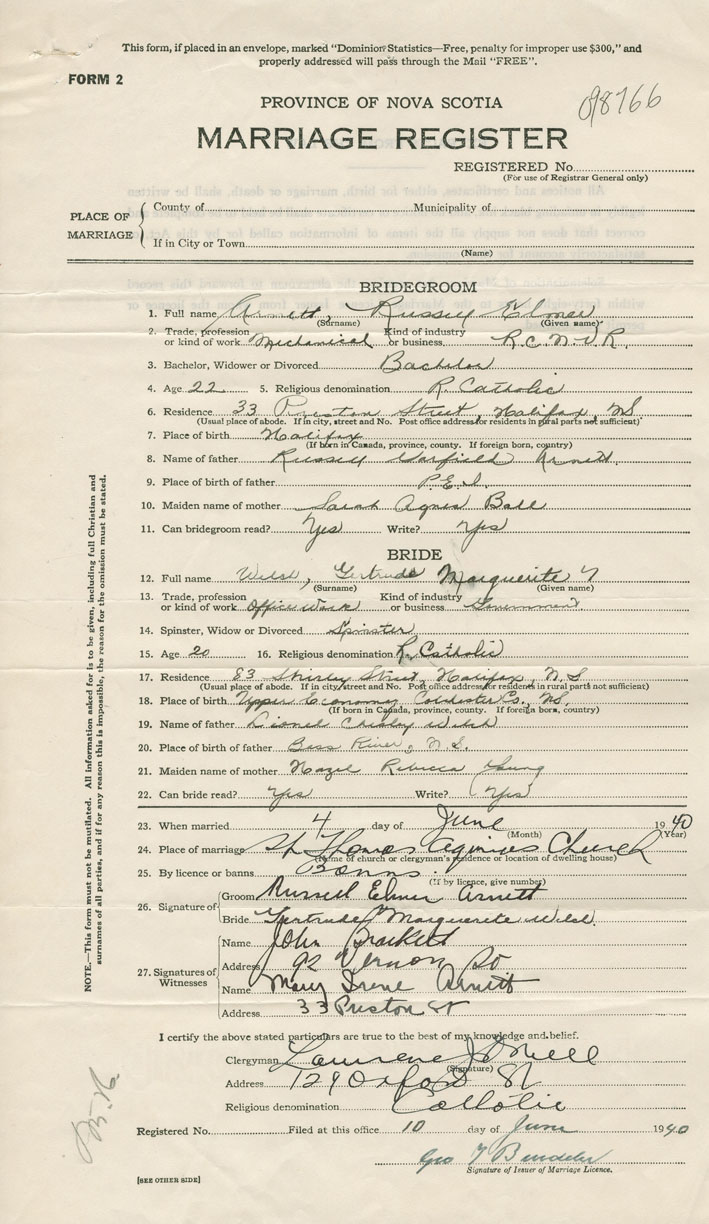 This form, if placed in an envelope, marked "Dominion Statistics—Free, penalty for improper use $300," and
properly addressed will pass through the Mail "FREE".
FORM 2
098766
PROVINCE OF NOVA SCOTIA
MARRIAGE REGISTER
REGISTERED No.
(For use of Registrar General only)
PLACE OF MARRIAGE
County of Municipality of
If in City or Town
(Name)
BRIDEGROOM
1. Full name Arnett, Russell Elmer
(Surname) (Given name)
2. Trade, profession or kind of work Mechanical Kind of industry or business R.C.N.V.R.
3. Bachelor, Widower or Divorced Bachelor
4. Age 22 5. Religious denomination R. Catholic
6. Residence 33 Preston Street, Halifax, NS
(Usual place of abode. If in city, street and No. Post office address for residents in rural parts not sufficient)
7. Place of birth Halifax
(If born in Canada, province, county. If foreign born, country)
8. Name of father Russell Garfield Arnett
9. Place of birth of father P.E.I.
10. Maiden name of mother Sarah Agnes Ball
11. Can bridegroom read? Yes Write? Yes
BRIDE
12. Full name Welsh, Gertrude Marguerite
(Surname) (Given name)
13. Trade, profession or kind of work Office Work Kind of industry or business Government
14. Spinster, Widow or Divorced Spinster
15. Age 20 16. Religious denomination R. Catholic
17. Residence 83 Shirley Street, Halifax, N.S
(Usual place of abode. If in city, street and No. Post office address for residents in rural parts not sufficient)
18. Place of birth Upper Economy Colchester Co., NS.
(If born in Canada, province, county. If foreign born, country)
19. Name of father Lionel Chesley Welsh
20. Place of birth of father Bass River, N.S.
21. Maiden name of mother Hazel Rebecca Young
22. Can bride read? Yes Write? Yes
23. When married 4 day of June 1940
(Month) (Year)
24. Place of marriage St Thomas Aquinas Church
(Name of church or clergyman's residence or location of dwelling house)
25. By licence or banns Banns
(If by licence, give number)
26. Signature of
Groom Russell Elmer Arnett
Bride Gertrude Marguerite Welsh
27. Signatures of Witnesses
Name John Brackett
Address 92 Vernon St
Name Mary Irene Arnett
Address 33 Preston St
I certify the above stated particulars are true to the best of my knowledge and belief.
Clergyman Laurence J O'Neill
(Signature)
Address 129 Oxford St
Religious denomination Catholic
Registered No. Filed at this office 10 day of June 1940
Geo
Signature of Issuer of Marriage Licence.
[SEE OTHER SIDE]
NOTE.—This form must not be mutilated. All information asked for is to be given, including full Christian and
surnames of all parties, and if for any reason this is impossible, the reason for the omission must be stated.